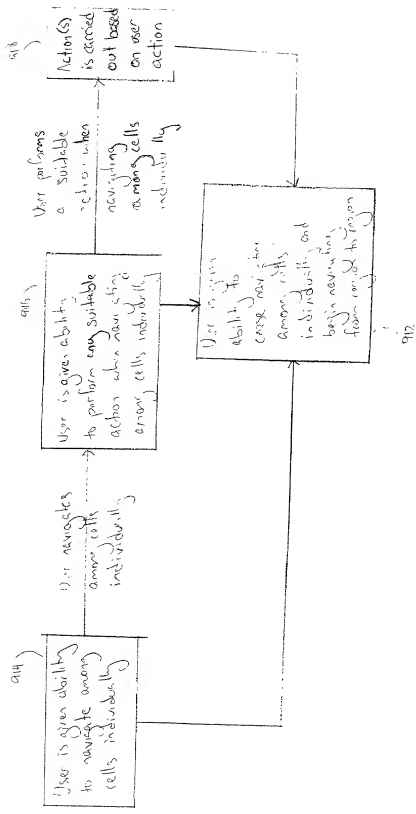 914
User is given ability
to navigate among
cells individually
User navigates
among cells
individually
916
User is given ability
to perform any suitable
action when navigating
among cells individually
User performs
a suitable
action when
navigating
among cells
individually
918
Action(s)
is carried
out based
on user
action
User is given
ability to
cease navigating
among cells
individually and
begin navigating
from region to region
912